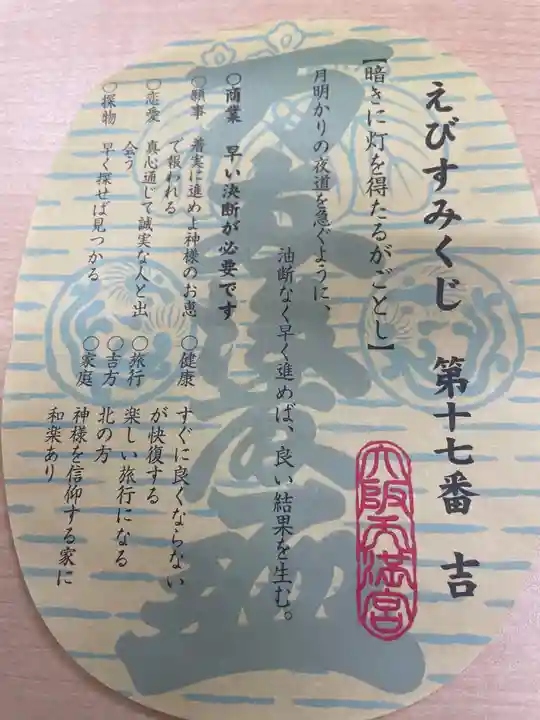 えびすみくじ 第十七番 吉
【暗きに灯を得たるがごとし】
月明かりの夜道を急ぐように、
油断なく早く進めば、良い結果を生む。
○商業 早い決断が必要です
○願事 着実に進めよ神様のお恵
で報われる
○恋愛 真心通じて誠実な人と出
会う
○探物 早く探せば見つかる
○健康 すぐに良くならない
が快復する
○旅行 楽しい旅行になる
○吉方 北の方
○家庭 神様を信仰する家に
和楽あり
大阪天満宮